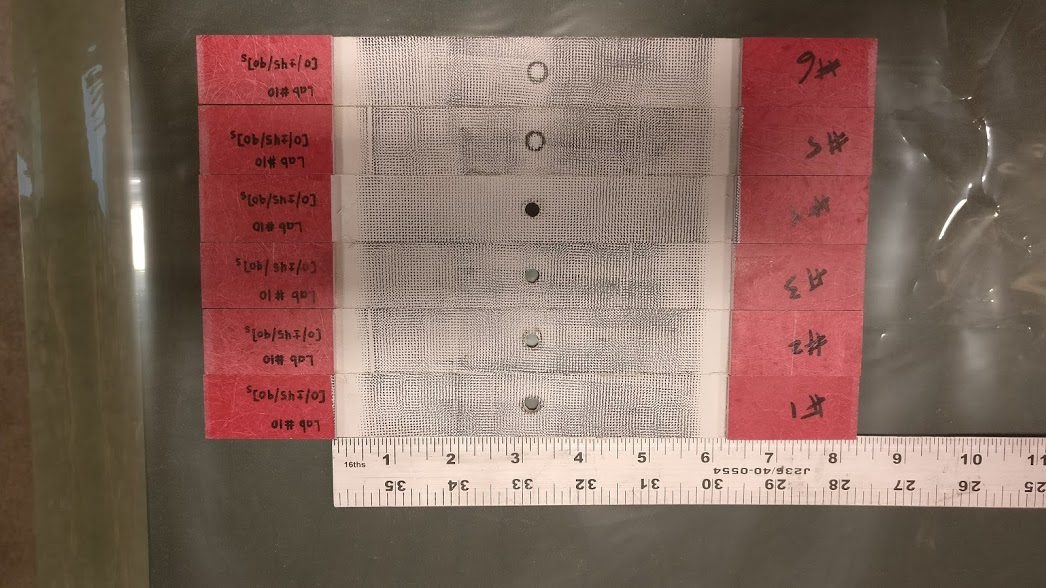 [0/±45/90]s
Lab #10
#6
[0/±45/90]s
Lab #10
#5
[0/±45/90]s
Lab #10
#4
[0/±45/90]s
Lab #10
#3
[0/±45/90]s
Lab #10
#2
[0/±45/90]s
Lab #10
#1
16ths 1 2 3 4 5 6 7 8 9 10 11
J236/40-0554
35 34 33 32 31 30 29 28 27 26 25